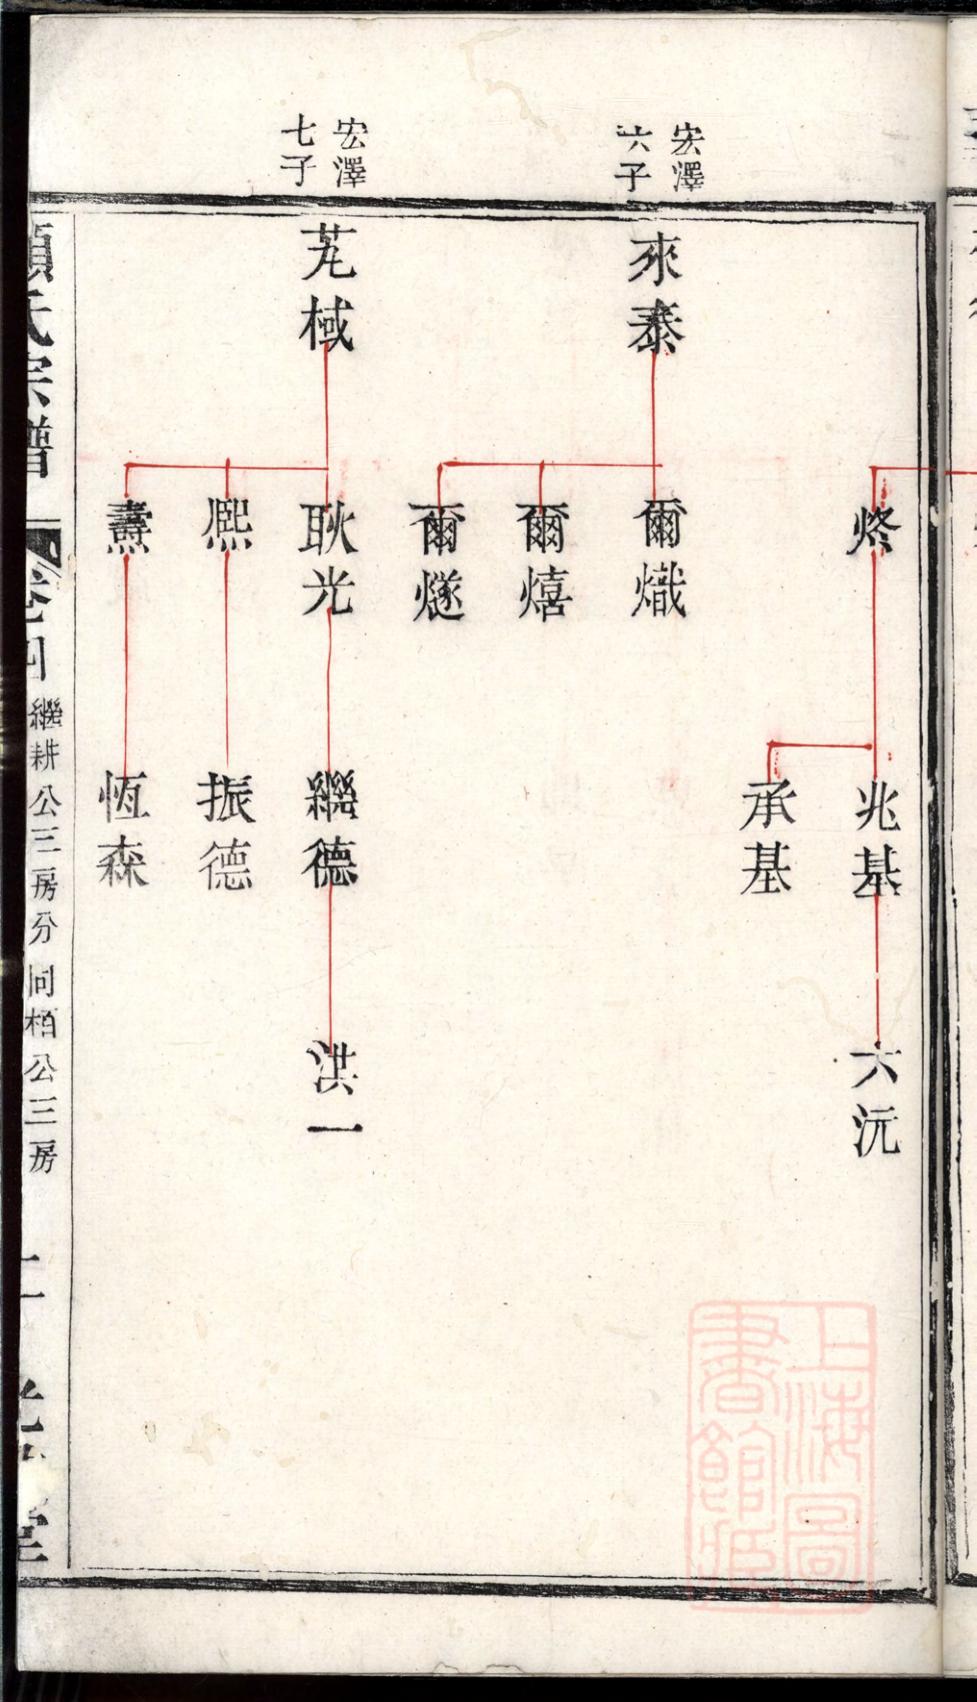 宏澤
六子
宏澤
七子
來泰
芃棫
烼
爾熾
爾熺
爾燧
耿光
熙
燾
兆基
承基
繼德
振德
恆森
六沅
洪一
氏宗譜
卷四
繼耕公三房分 同柏公三房
上海圖
書館藏